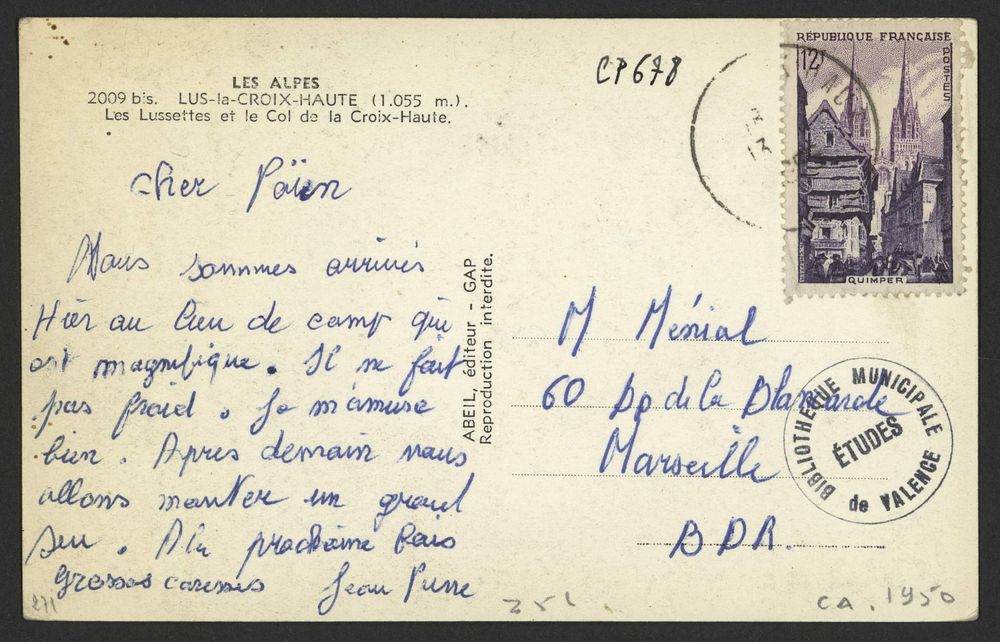 LES ALPES
2009 bis. LUS-la-CROIX-HAUTE (1.055 m.).
Les Lussettes et le Col de la Croix-Haute.
CP678
RÉPUBLIQUE FRANÇAISE
POSTES
12f
QUIMPER
cher
Nous sommes arrivés
Hier au lieu de camp qui
est magnifique. Il ne fait
pas froid. Je m'amuse
bien. Apres demain nous
allons monter un grand
feu. A la prochaine fois
Grosses caresses Jean Pierre
ABEIL, éditeur - GAP
Reproduction interdite.
M Ménial
60 Bd de la Blancarde
Marseille
BDR.
BIBLIOTHEQUE MUNICIPALE
ÉTUDES
de VALENCE
271
CA. 1950